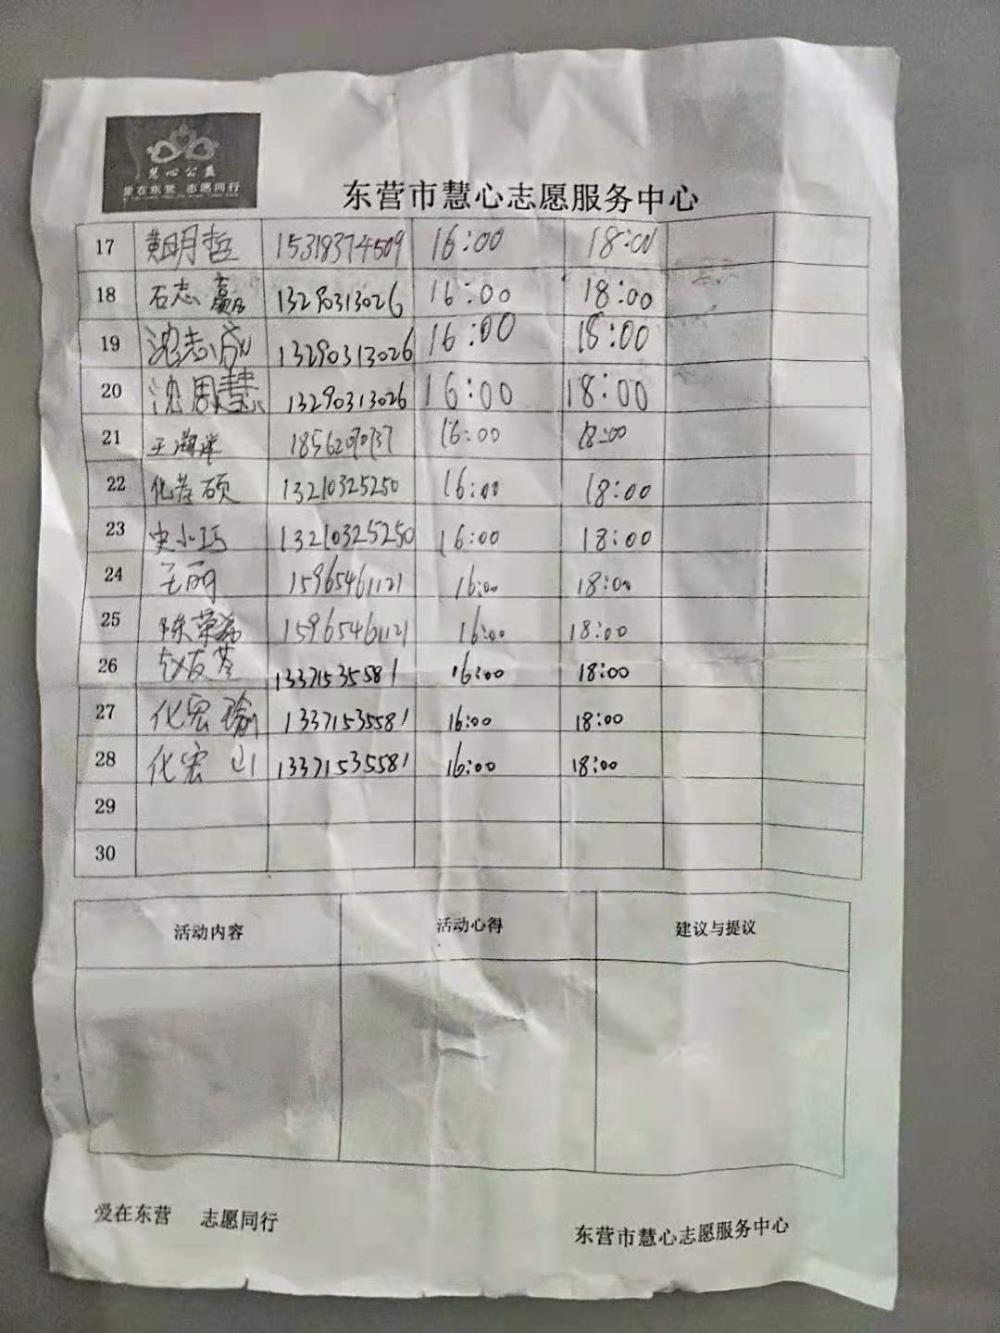 慧心公益
爱在东营 志愿同行
东营市慧心志愿服务中心
17 黄明哲 15318374509 16:00 18:00
18 石志赢 13290313026 16:00 18:00
19 沈志成 13290313026 16:00 18:00
20 沈周慧 13290313026 16:00 18:00
21 王海洋 16:00 18:00
22 化若硕 13210325250 16:00 18:00
23 史小巧 13210325250 16:00 18:00
24 王丽 15965461121 16:00 18:00
25 陈荣 15965461121 16:00 18:00
26 赵友芩 13371535581 16:00 18:00
27 化宏瑜 13371535581 16:00 18:00
28 化宏山 13371535581 16:00 18:00
29
30
活动内容 活动心得 建议与提议
爱在东营 志愿同行 东营市慧心志愿服务中心